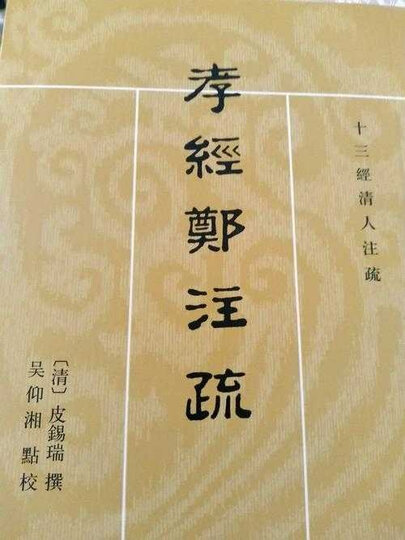 十三經清人注疏
孝經鄭注疏
〔清〕皮錫瑞 撰
吴仰湘 點校